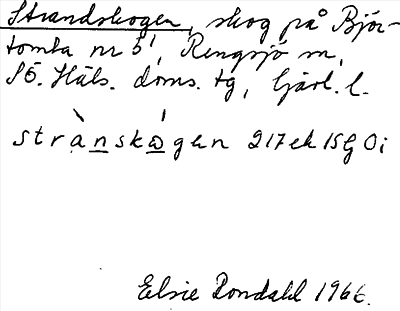 Strandskogen, skog på Björ-
tomta nr 5¹, Rengsjö sn,
SÖ. Häls. doms. tg, Gävl. l.
strànskó̲gen 217ek 15g Oi
Elsie Rondahl 1966.